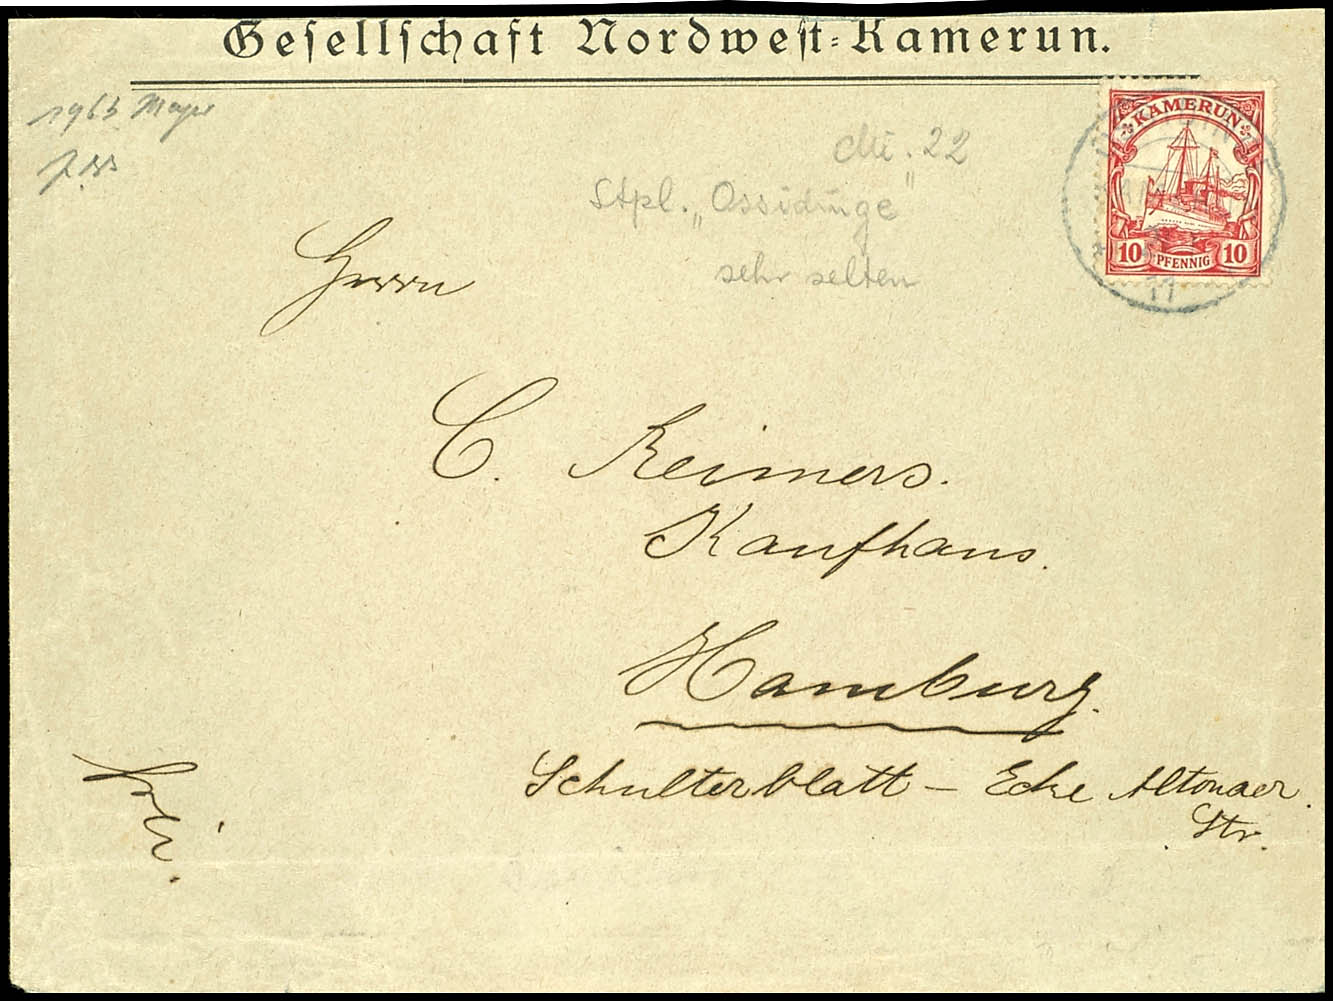 Gesellschaft Nordwest-Kamerun.
1963 Meyer
Mi. 22
Stpl. „Ossidinge"
sehr selten
KAMERUN
10 PFENNIG 10
11
Herrn
C. Reimers.
Kaufhaus.
Hamburg.
Schulterblatt – Ecke Altonaer
Str.